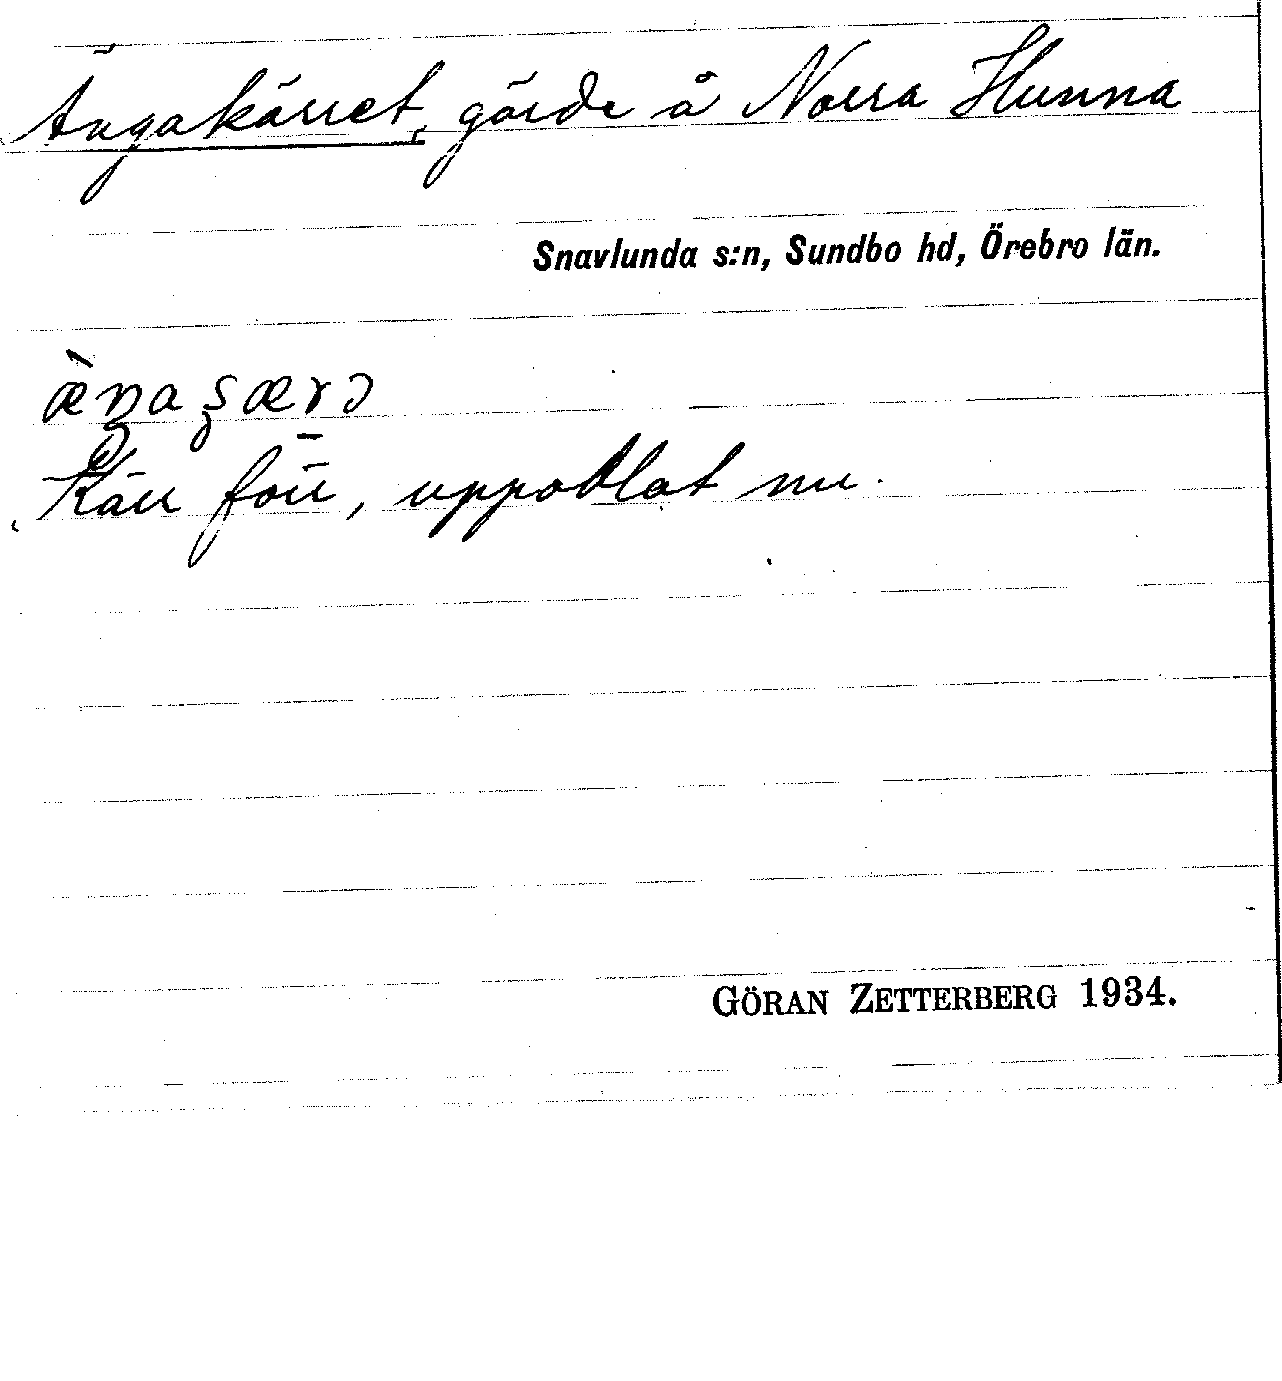 Ängakärret, gärde å Norra Hunna
Snavlunda s:n, Sundbo hd, Örebro län.
Kärr förr, uppodlat nu.
GÖRAN ZETTERBERG 1934.